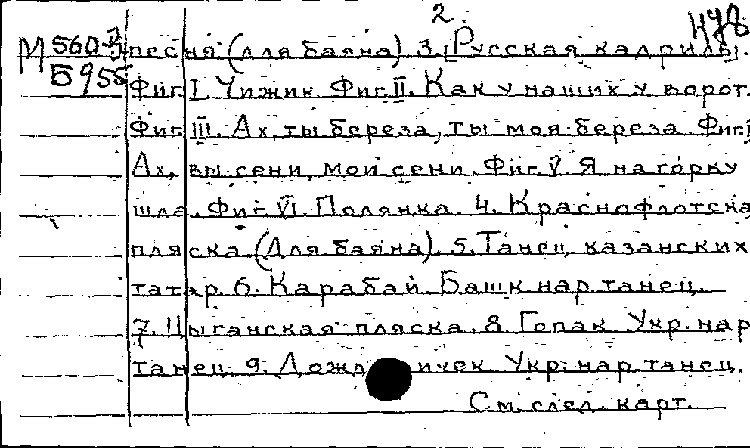 2.
478
М 560-3 песня (для баяна) 3. Русская кадриль.
Б 955 Фиг. I. Чижик. Фиг. II. Как у наших у ворот.
Фиг. III. Ах, ты береза, ты моя береза. Фиг. I
Ах, вы сени, мои сени. Фиг. V. Я на горку
шла. Фиг. VI. Полянка. 4. Краснофлотска
пляска (Для баяна). 5. Танец казанских
татар 6. Карабай. Башк. нар. танец.
7. Цыганская пляска. 8. Гопак. Укр. нар
танец. 9. Дожд ичек. Укр. нар. танец.
См. след. карт.